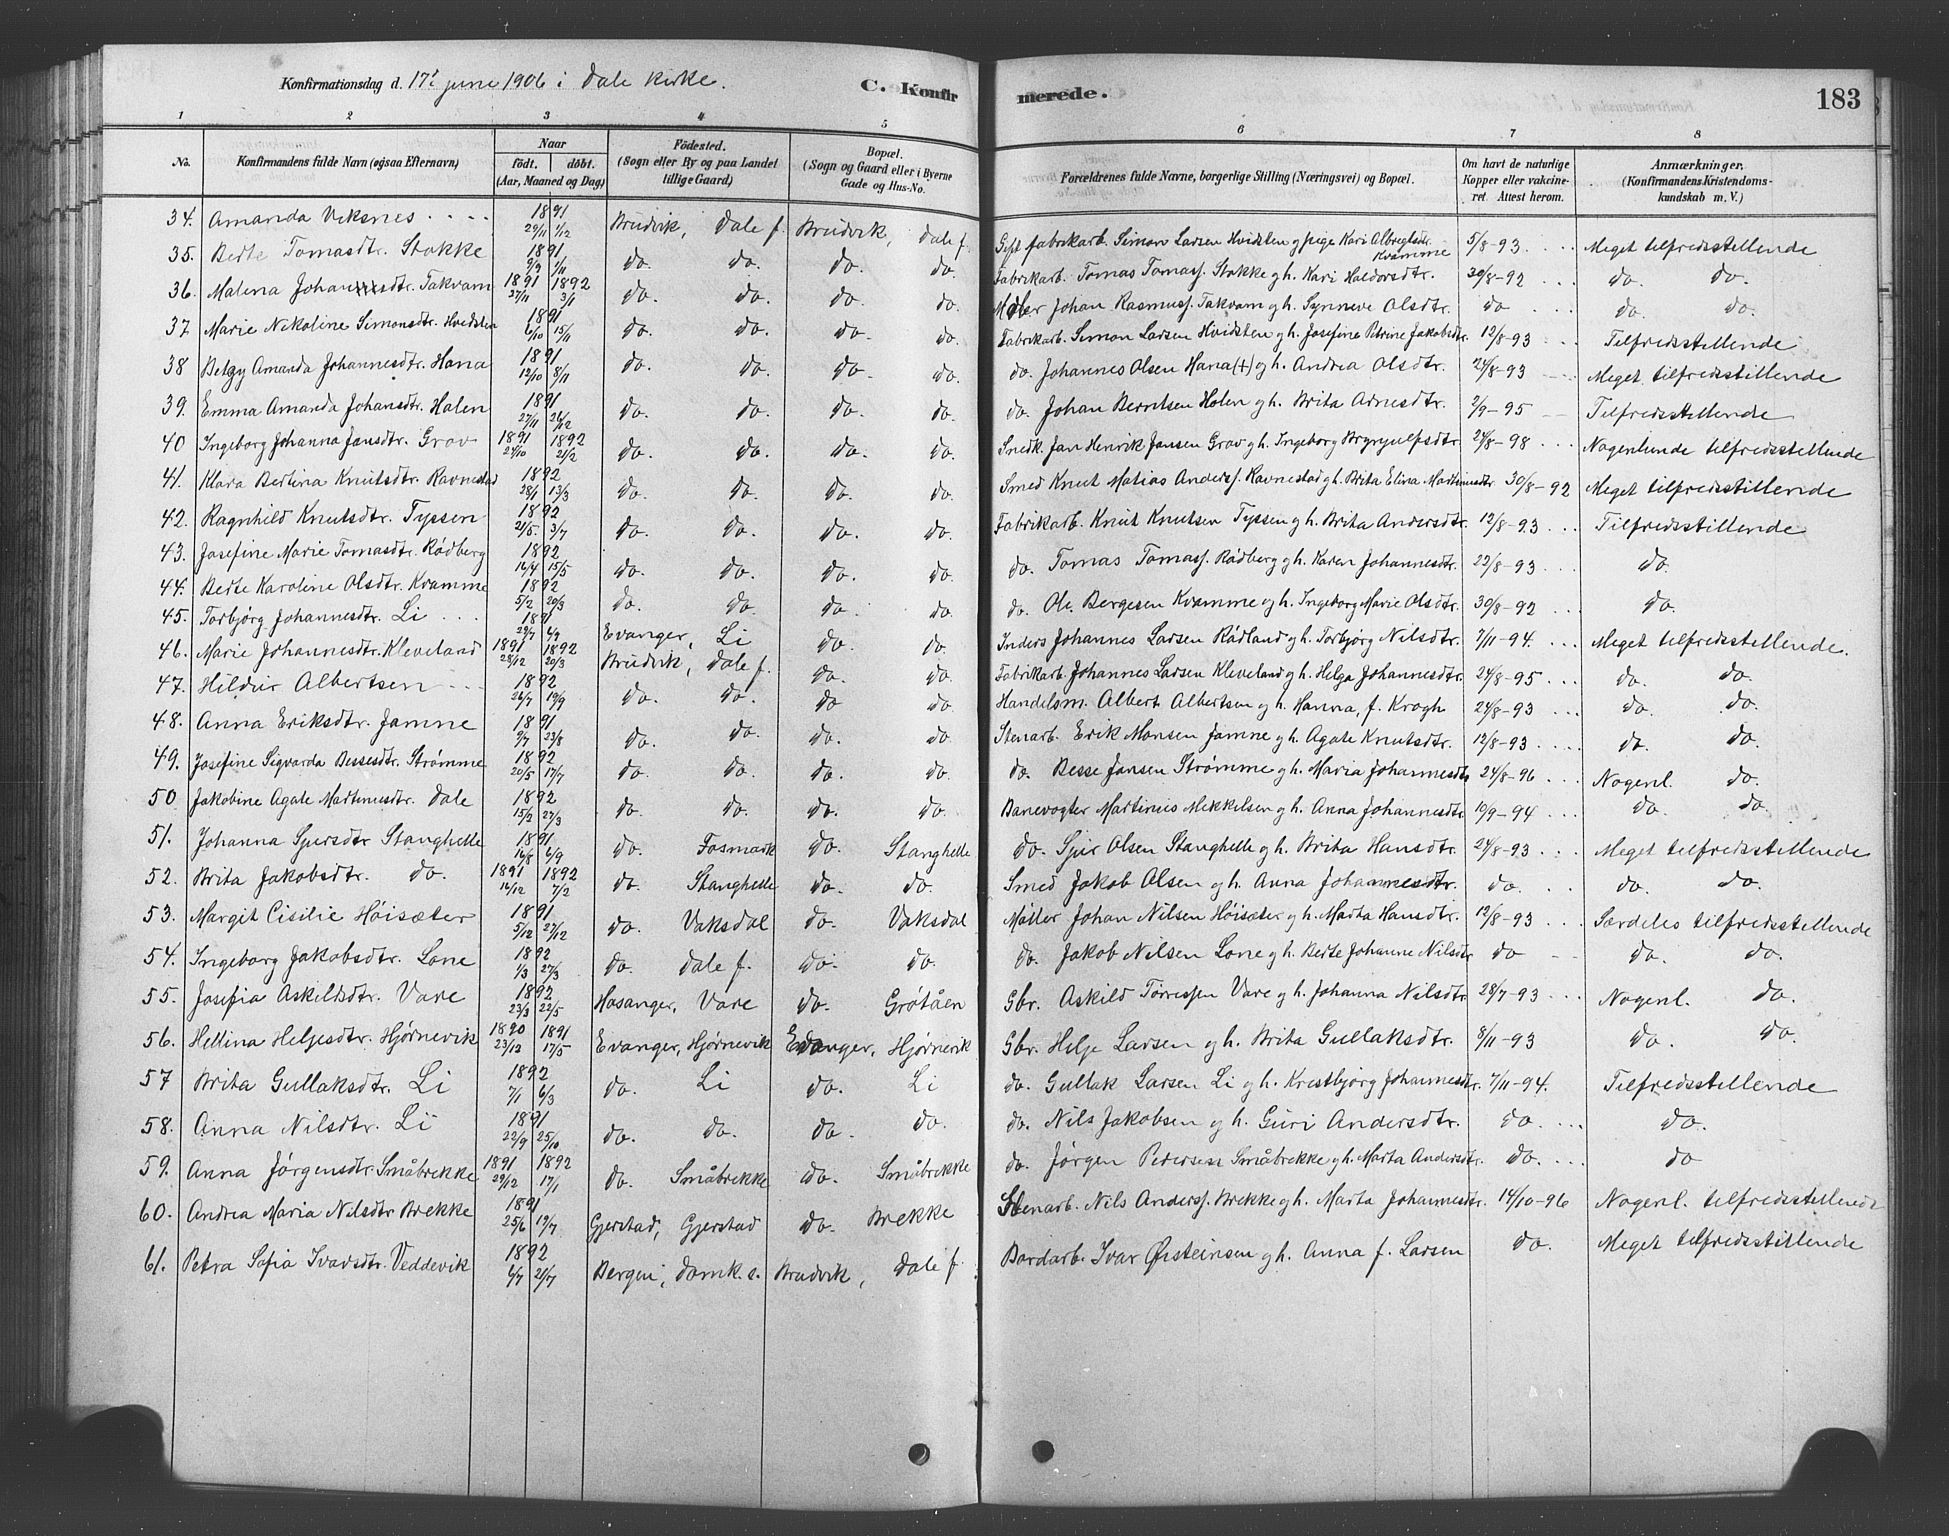 Konfirmationsdag d. 17' june 1906 i Dale kirke. C. Konfirmerede. 183
1 2 3 4 5 6 7 8
No. Konfirmandens fulde Navn (ogsaa Efternavn) Naar födt. döbt. (Aar, Maaned og Dag) Födested. (Sogn eller By og paa Landet tillige Gaard) Bopæl. (Sogn og Gaard eller i Byerne Gade og Hus-No. Forældrenes fulde Navne, borgerlige Stilling (Næringsvei) og Bopæl. Om havt de naturlige Kopper eller vakcineret. Attest herom. Anmærkninger. (Konfirmandens Kristendomskundskab m. V.)
34. Amanda Viksnes 1891 29/11 1/12 Brudvik, Dale f. Brudvik, Dale f. Gift fabrikarb. Simon Larsen Hvidsten og pige Kari Albregtsdtr. Kvamme 5/8-93. Meget tilfredsstillende
35. Berte Tomasdtr. Stokke 1891 9/9 1/11 do. do. do. do. Fabrikarb. Tomas Tomass. Stokke og h. Kari Haldorsdtr. 30/8-92 do. do.
36. Malena Johannesdtr. Takvam 1891 27/11 1892 3/1 do. do. do. do. Møller Johan Rasmuss. Takvam og h. Synneve Olsdtr. do do. do.
37 Marie Nikoline Simonsdtr. Hvidsten 1891 6/10 15/11 do. do. do. do. Fabrikarb. Simon Larsen Hvidsten og h. Josefine Petrine Jakobsdtr. 12/8-93 Tilfredsstillende
38 Betzy Amanda Johannesdtr. Hana 1891 12/10 8/11 do. do. do. do. do. Johannes Olsen Hana (+) og h. Andrea Olsdtr. 24/8-93 Meget tilfredsstillende
39. Emma Amanda Johansdtr. Holen 1891 27/11 26/12 do. do. do. do. do. Johan Berntsen Holen og h. Brita Arnesdtr. 2/9-95 Tilfredsstillende
40 Ingeborg Johanna Jansdtr. Grov 1891 27/10 1892 21/2 do. do. do. do. Snedk. Jan Henrik Jansen Grov og h. Ingeborg Brynjulfsdtr. 24/8-98 Nogenlunde tilfredsstillende
41. Klara Bertina Knutsdtr. Ravnestad 1892 28/1 13/3 do. do. do. do. Smed Knut Matias Anderss. Ravnestad og h. Brita Elina Martinusdtr 30/8-92 Meget tilfredsstillende
42. Ragnhild Knutsdtr. Tyssen 1892 21/5. 3/7 do. do. do. do. Fabrikarb. Knut Knutsen Tyssen og h. Brita Andersdtr. 12/8-93 Tilfredsstillende
43. Josefine Marie Tomasdtr. Rødberg 1892 16/4 15/5 do. do. do. do. do. Tomas Tomass. Rødberg og h. Karen Johannesdtr. 22/8-93 do.
44. Berte Karoline Olsdtr. Kvamme 1892 5/2 20/3 do. do. do. do do. Ole Bergesen Kvamme og h. Ingeborg Marie Olsdtr. 30/8-92 do.
45. Torbjørg Johannesdtr. Li 1891 29/7 6/9 Evanger, Li do. do. Inders Johannes Larsen Rødland og h. Torbjørg Nilsdtr. 7/11-94. Meget tilfredsstillende.
46. Marie Johannesdtr. Kleveland 1891 28/12 1892 20/3 Brudvik, Dale f. do. do. Fabrikarb. Johannes Larsen Kleveland og h. Helga Johannesdtr. 24/8-95 do. do.
47. Hildur Albertsen 1892 26/7 19/9 do. do. do do. Handelsm. Albert Albertsen og h. Hanna, f. Krogh 24/8-93 do. do.
48. Anna Eriksdtr. Jamne 1891 9/7 23/8 do. do. do. do. Stenarb. Erik Monsen Jamne og h. Agate Knutsdtr. 12/8-93 do. do.
49. Josefine Sigvarda Bessesdtr. Strømme 1892 20/5 17/7 do. do. do. do. do. Besse Jansen Strømme og h. Maria Johannesdtr 24/8-96 Nogenl. do.
50 Jakobine Agate Martinusdtr. Dale 1892 15/2 27/3 do. do. do. do. Banevogter Martinus Mikkelsen og h. Anna Johannesdtr. 10/9-94 do do.
51. Johanna Sjursdtr Stanghelle 1891 16/8 6/9 do. Fosmark do. Stanghelle do. Sjur Olsen Stanghelle og h. Brita Hansdtr. 24/8-93 Meget tilfredsstillende
52. Brita Jakobsdtr. do. 1891 16/12 1892 7/2 do. Stanghelle do. do. Smed Jakob Olsen og h. Anna Johannesdtr. do. do. do.
53. Margit Cisilie Høisæter 1891 5/12 27/12 do. Vaksdal do. Vaksdal Møller Johan Nilsen Høisæter og h. Marta Hansdtr. 12/8-93 Særdeles tilfredsstillende
54. Ingeborg Jakobsdtr. Lone 1892 1/3 27/3 do. Dale f. do. do. do. Jakob Nilsen Lone og h. Berte Johanne Nilsdtr do do. do.
55. Josefia Askildsdtr. Vare 1892 23/3 22/5 Hosanger, Vare do. Grøtåen Gbr. Askild Torressen Vare og h. Johanna Nilsdtr. 28/7-93 Nogenl. do.
56. Hellina Heljesdtr. Hjørnevik 1890 23/12 1891 17/5 Evanger, Hjørnevik Evanger, Hjørnevik Gbr. Helje Larsen og h. Brita Gullaksdtr. 8/11-93 do. do.
57 Brita Gullaksdtr. Li 1892 7/1 6/3 do. Li do. Li do. Gullak Larsen Li og h. Krestbjørg Johannesdtr. 7/11-94. Tilfredsstillende
58. Anna Nilsdtr. Li 1891 22/9 25/10 do. do. do. do. do. Nils Jakobsen og h. Guri Andersdtr. do. do.
59. Anna Jørgensdtr. Småbrekke 1891 29/12 1892 17/1 do. Småbrekke do. Småbrekke do. Jørgen Pedersen Småbrekke og h. Marta Andersdtr. do. do
60. Andrea Maria Nilsdtr Brekke 1891 25/6 19/7 Gjerstad, Gjerstad do. Brekke Stenarb. Nils Anderss. Brekke og h. Marta Johannesdtr. 14/10-96 Nogenl. tilfredsstillende
61. Petra Sofia Ivarsdtr. Veddevik 1892 6/7 21/7 Bergen, Domk. s. Brudvik, Dale f. Bordarb. Ivar Øisteinsen og h. Anna f. Larsen do. Meget tilfredsstillende